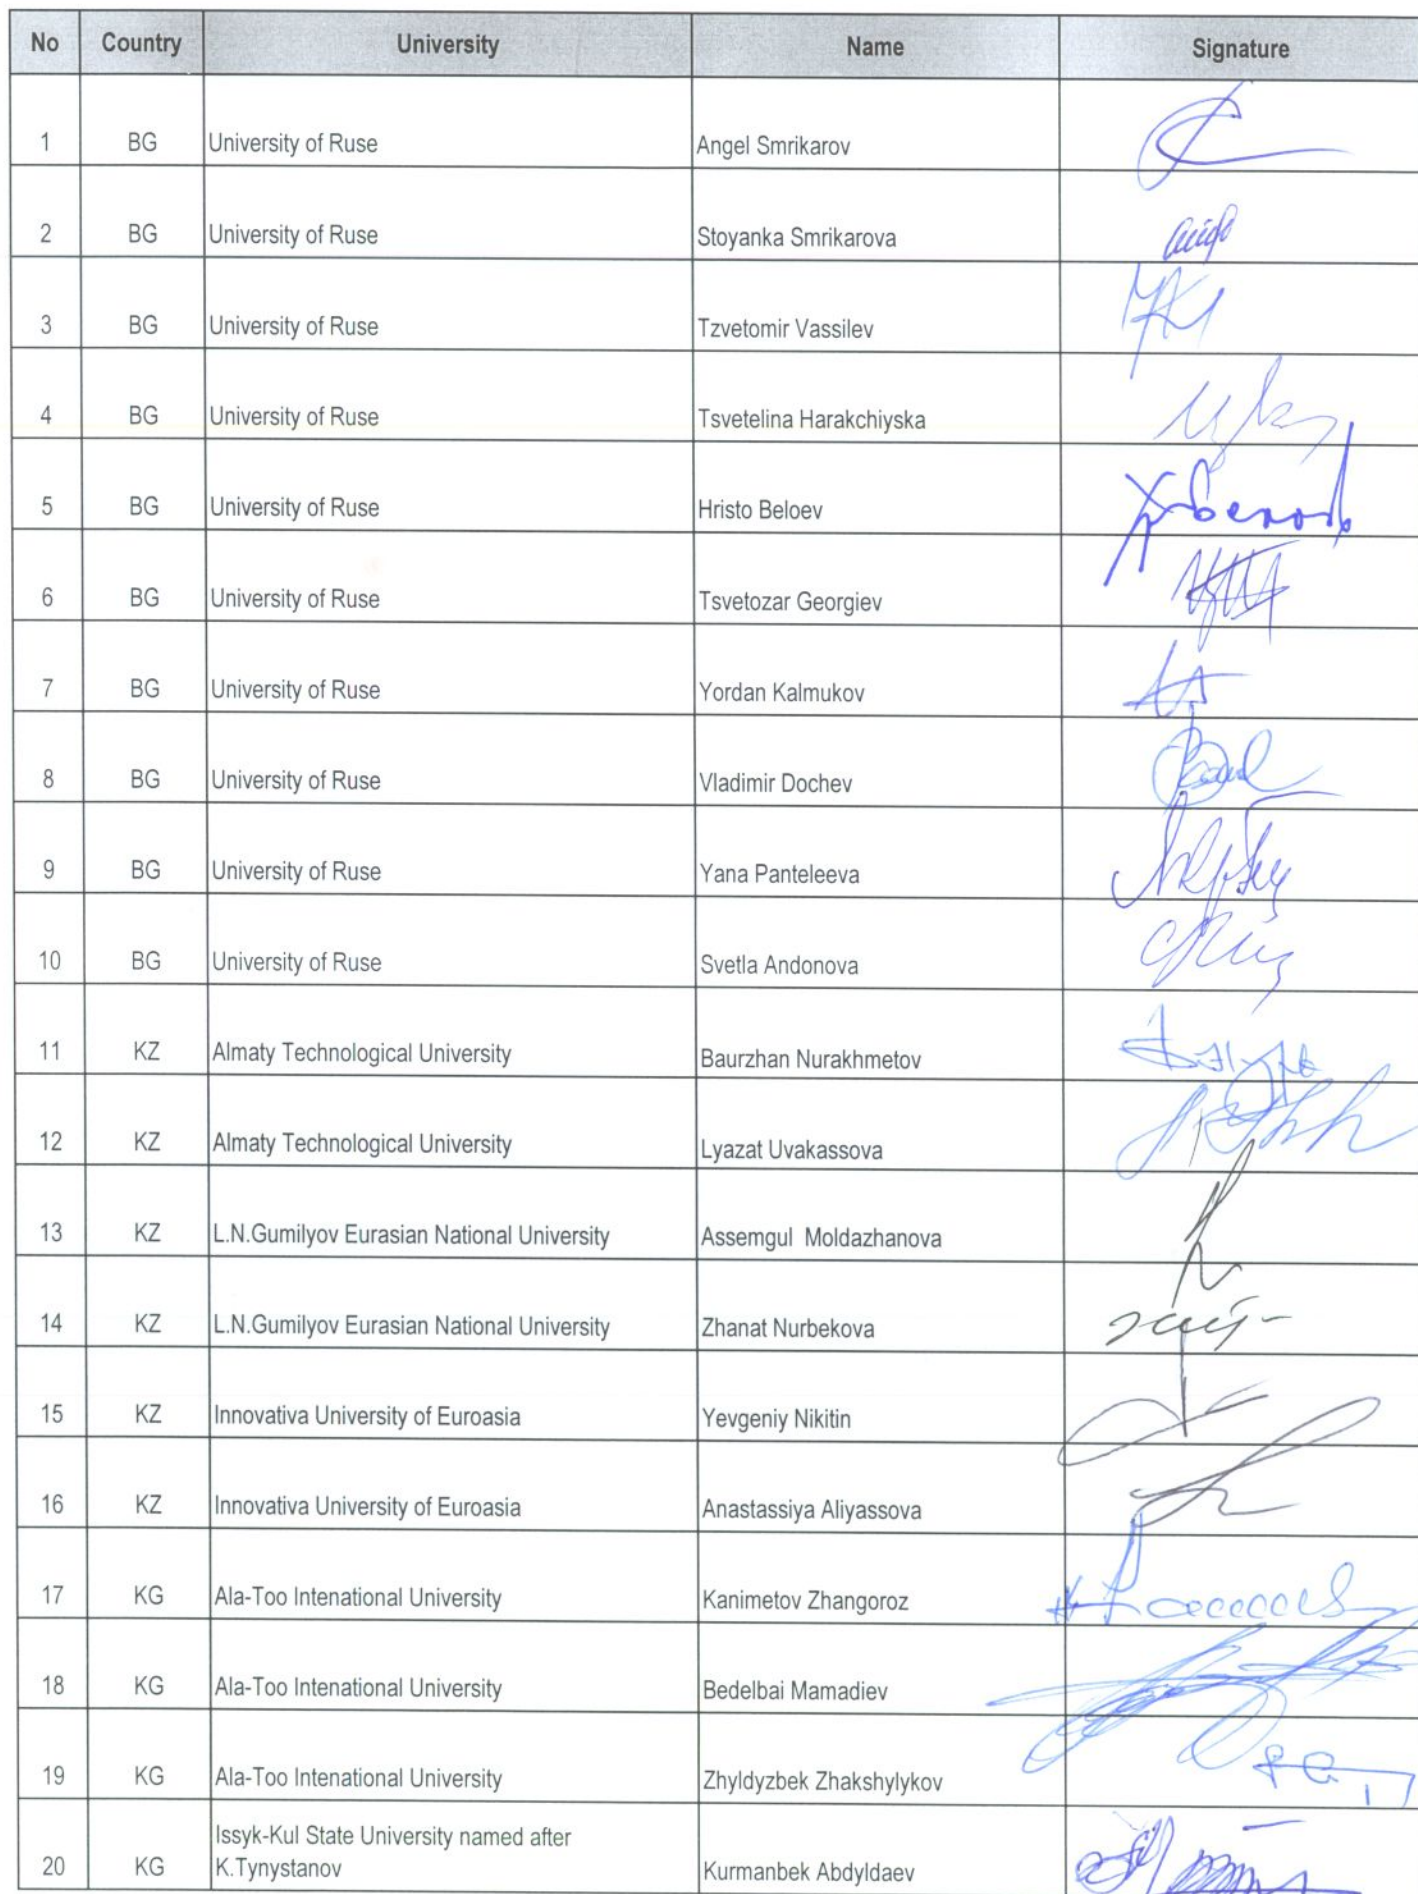 No Country University Name Signature
1 BG University of Ruse Angel Smrikarov
2 BG University of Ruse Stoyanka Smrikarova
3 BG University of Ruse Tzvetomir Vassilev
4 BG University of Ruse Tsvetelina Harakchiyska
5 BG University of Ruse Hristo Beloev
6 BG University of Ruse Tsvetozar Georgiev
7 BG University of Ruse Yordan Kalmukov
8 BG University of Ruse Vladimir Dochev
9 BG University of Ruse Yana Panteleeva
10 BG University of Ruse Svetla Andonova
11 KZ Almaty Technological University Baurzhan Nurakhmetov
12 KZ Almaty Technological University Lyazat Uvakassova
13 KZ L.N.Gumilyov Eurasian National University Assemgul Moldazhanova
14 KZ L.N.Gumilyov Eurasian National University Zhanat Nurbekova
15 KZ Innovativa University of Euroasia Yevgeniy Nikitin
16 KZ Innovativa University of Euroasia Anastassiya Aliyassova
17 KG Ala-Too Intenational University Kanimetov Zhangoroz
18 KG Ala-Too Intenational University Bedelbai Mamadiev
19 KG Ala-Too Intenational University Zhyldyzbek Zhakshylykov
Issyk-Kul State University named after
20 KG K.Tynystanov Kurmanbek Abdyldaev